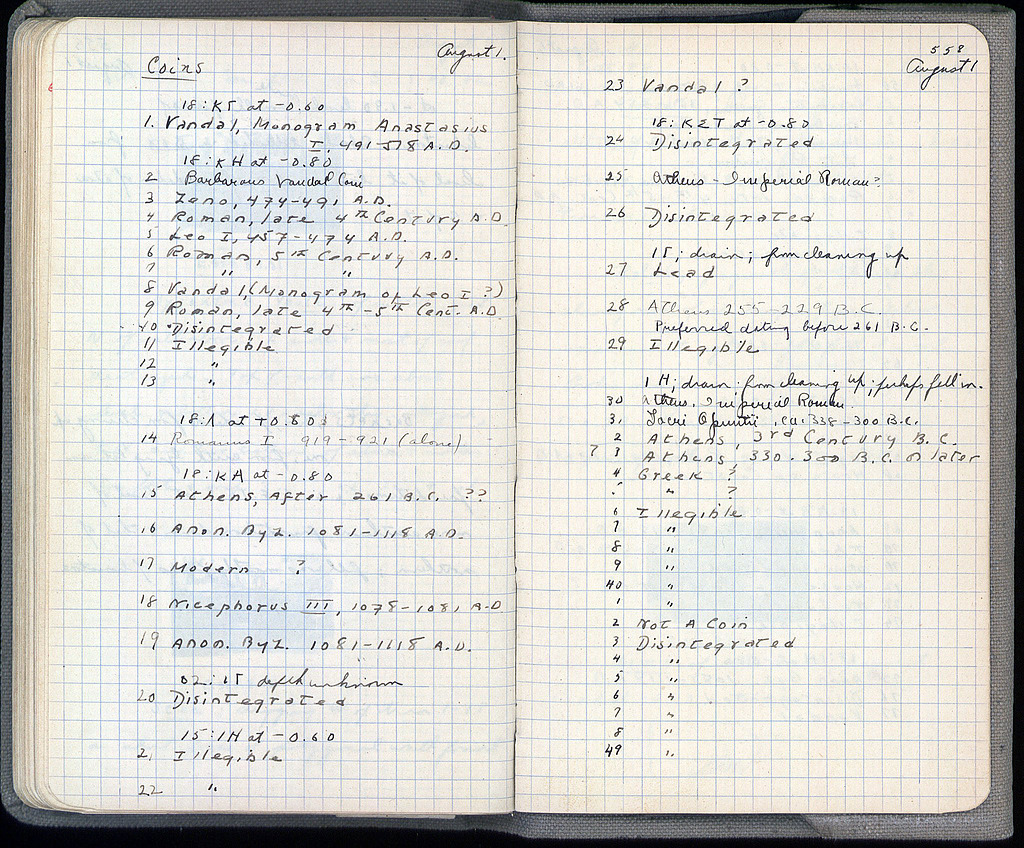 August 1.
Coins
18:ΚΓ at -0.60
1. Vandal, Monogram Anastasius
I, 491-518 A.D.
18:ΚΗ at -0.80
2 Barbarous Vandal Coin
3 Zeno, 474-491 A.D.
4 Roman, late 4th Century A.D.
5 Leo I, 457-474 A.D.
6 Roman, 5th Century A.D.
7 " "
8 Vandal, (Monogram of Leo I ?)
9 Roman, late 4th-5th Cent. A.D.
10 Disintegrated
11 Illegible
12 "
13 "
18:Λ at +0.60
14 Romanus I 919-921 (alone)
18:ΚΛ at -0.80
15 Athens, After 261 B.C. ??
16 Anon. Byz. 1081-1118 A.D.
17 Modern ?
18 Nicephorus III, 1078-1081 A.D
19 Anon. Byz. 1081-1118 A.D.
02:ΙΓ depth unknown
20 Disintegrated
15:ΙΗ at -0.60
21 Illegible
22 "
558
August 1
23 Vandal ?
18:ΚΣΤ at -0.80
24 Disintegrated
25 Athens - Imperial Roman?
26 Disintegrated
ΙΓ; drain; from cleaning up
27 Lead
28 Athens 255-229 B.C.
Preferred dating before 261 B.C.
29 Illegible
ΙΗ; drain: from cleaning up; perhaps fell in.
30 Athens. Imperial Roman.
31 Locri Opuntii, ca. 338-300 B.C.
2 Athens, 3rd Century B.C.
? 3 Athens, 330-300 B.C. or later
4 Greek ?
5 " ?
6 Illegible
7 "
8 "
9 "
40 "
1 "
2 Not A Coin
3 Disintegrated
4 "
5 "
6 "
7 "
8 "
49 "